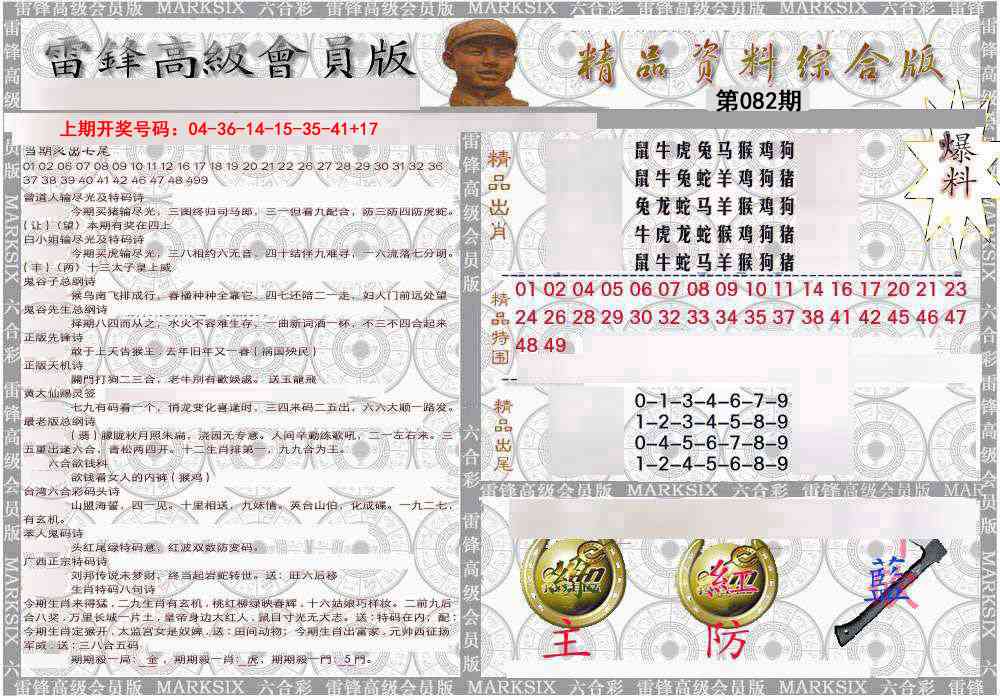 雷锋高级会员版 MARKSIX 六合彩 雷锋高级会员版 MARKSIX 六合彩 雷锋高级会员版 MARKSIX 六合彩 雷锋
雷鋒高級會員版
精品资料综合版
第082期
上期开奖号码：04-36-14-15-35-41+17
01 02 06 07 08 09 10 11 12 16 17 18 19 20 21 22 26 27 28 29 30 31 32 36
37 38 39 40 41 42 46 47 48 499
曾道人输尽光及特码诗
今期买猪输尽光，三图终归司马郎，三一但看九配合，防三防四防虎蛇。
{让}(望）本期有奖在四上
白小姐输尽光及特码诗
今期买虎输尽光，三八相约六无音，四十结伴九难寻，一六流落七分明。
{丰}(两）十三太子皇上威
鬼谷子总纲诗
候鸟南飞排成行，春播种种全靠它，四七还陪二一走，妇人门前远处望
鬼谷先生总纲诗
择期八四而从之，水火不容难生存，一曲新词酒一杯，不三不四合起来
正版先锋诗
敢于上天告猴王，去年旧年又一春{祸国殃民}
正版天机诗
關門打狗二三合，老牛别有歡娛處。 送玉龍飛
黄大仙赐灵签
七九有码看一个，悄龙变化喜逢时，三四来码二五出，六六大顺一路发。
最老版总纲诗
五里出遂六合，青松两四开。十二生肖排第一，九九合为王。
六合欲钱料
欲钱看女人的内裤{猴鸡}
台湾六合彩码头诗
山盟海誓，四一见。十里相送，九妹情。英台山伯，化成碟。一九二七，
有玄机。
本人鬼码诗
头红尾绿特码意，红波双数防变码。
广西正宗特码诗
刘邦传说未梦财，终当起岩蛇转世。送：旺六后移
生肖特码八句诗
今期生肖来得猛，二九生肖有玄机，桃红柳绿映春辉，十六姑娘巧样妆。二前九后
合八奖，万里长城一片土，皇帝身边大红人，鼠目寸光无大志。送：特码在内；配：
今期生肖定猴开，太监宫女是奴婢，送：田间动物；今期生肖出富家，元帅西征扬
军威，送：三八合五码
期期殺一局：金，期期殺一肖：虎，期期殺一門：5門。
精品出肖
鼠牛虎兔马猴鸡狗
鼠牛兔蛇羊鸡狗猪
兔龙蛇马羊猴鸡狗
牛虎龙蛇猴鸡狗猪
鼠牛蛇马羊猴狗猪
爆料
精品特围
01 02 04 05 06 07 08 09 10 11 14 16 17 20 21 23
24 26 28 29 30 32 33 34 35 37 38 41 42 45 46 47
48 49
精品出尾
0-1-3-4-6-7-9
1-2-3-4-5-8-9
0-4-5-6-7-8-9
1-2-4-5-6-8-9
雷锋高级会员版 MARKSIX 六合彩 雷锋高级会员版 MAR
绿
红
藍
主
防
雷锋高级会员版 MARKSIX 六合彩 雷锋高级会员版 MARKSIX 六合彩 雷锋高级会员版 MARKSIX 六合彩 雷锋